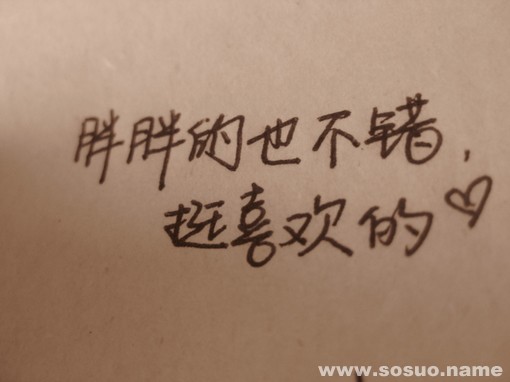 胖胖的也不错，
挺喜欢的♡
www.sosuo.name